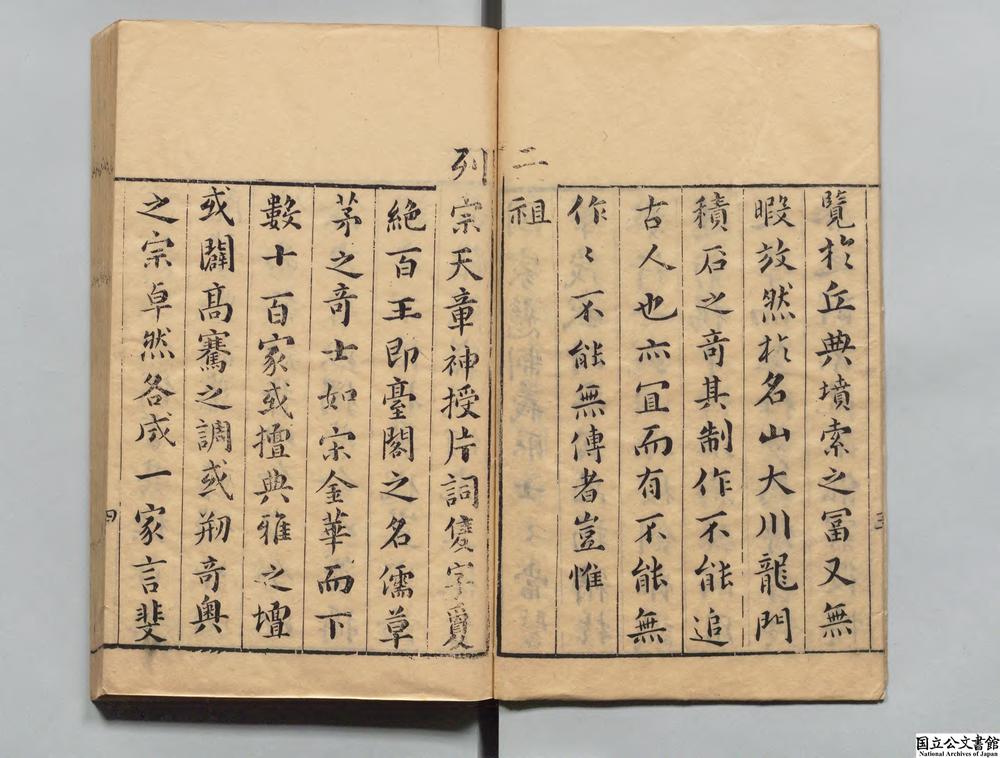 覽於丘典墳索之冨又無
暇放然於名山大川龍門
積石之奇其制作不能追
古人也亦冝而有不能無
作〻不能無傳者豈惟
二祖
列宗天章神授片詞隻字敻
絶百王即臺閣之名儒草
茅之竒士如宋金華而下
數十百家或擅典雅之壇
或闢高騫之調或刱竒奥
之宗卓然各成一家言斐
三
四
国立公文書館
National Archives of Japan